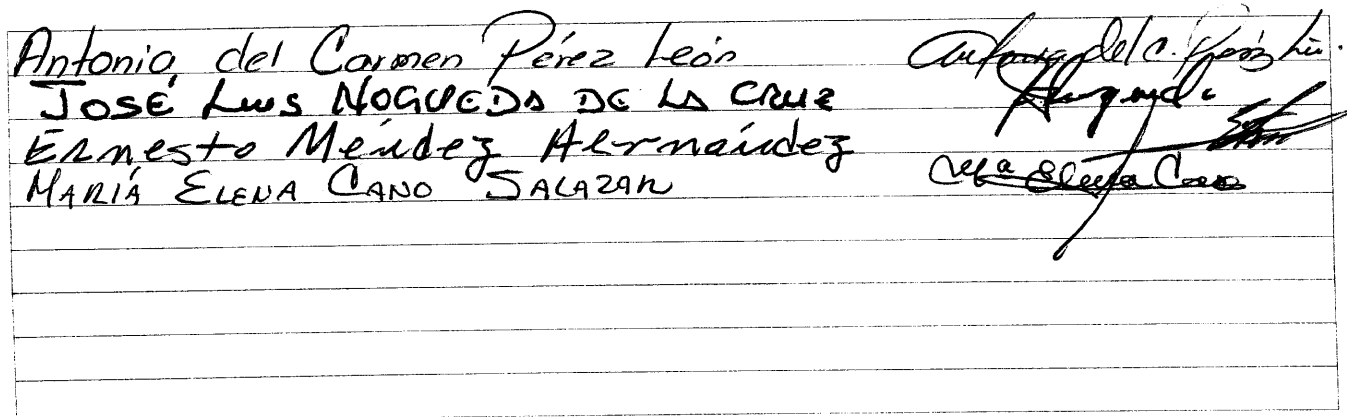 Antonia del Carmen Pérez León
JOSÉ LUIS NOGUEDA DE LA CRUZ
Ernesto Méndez Hernández
MARÍA ELENA CANO SALAZAR Mª Elena Cano